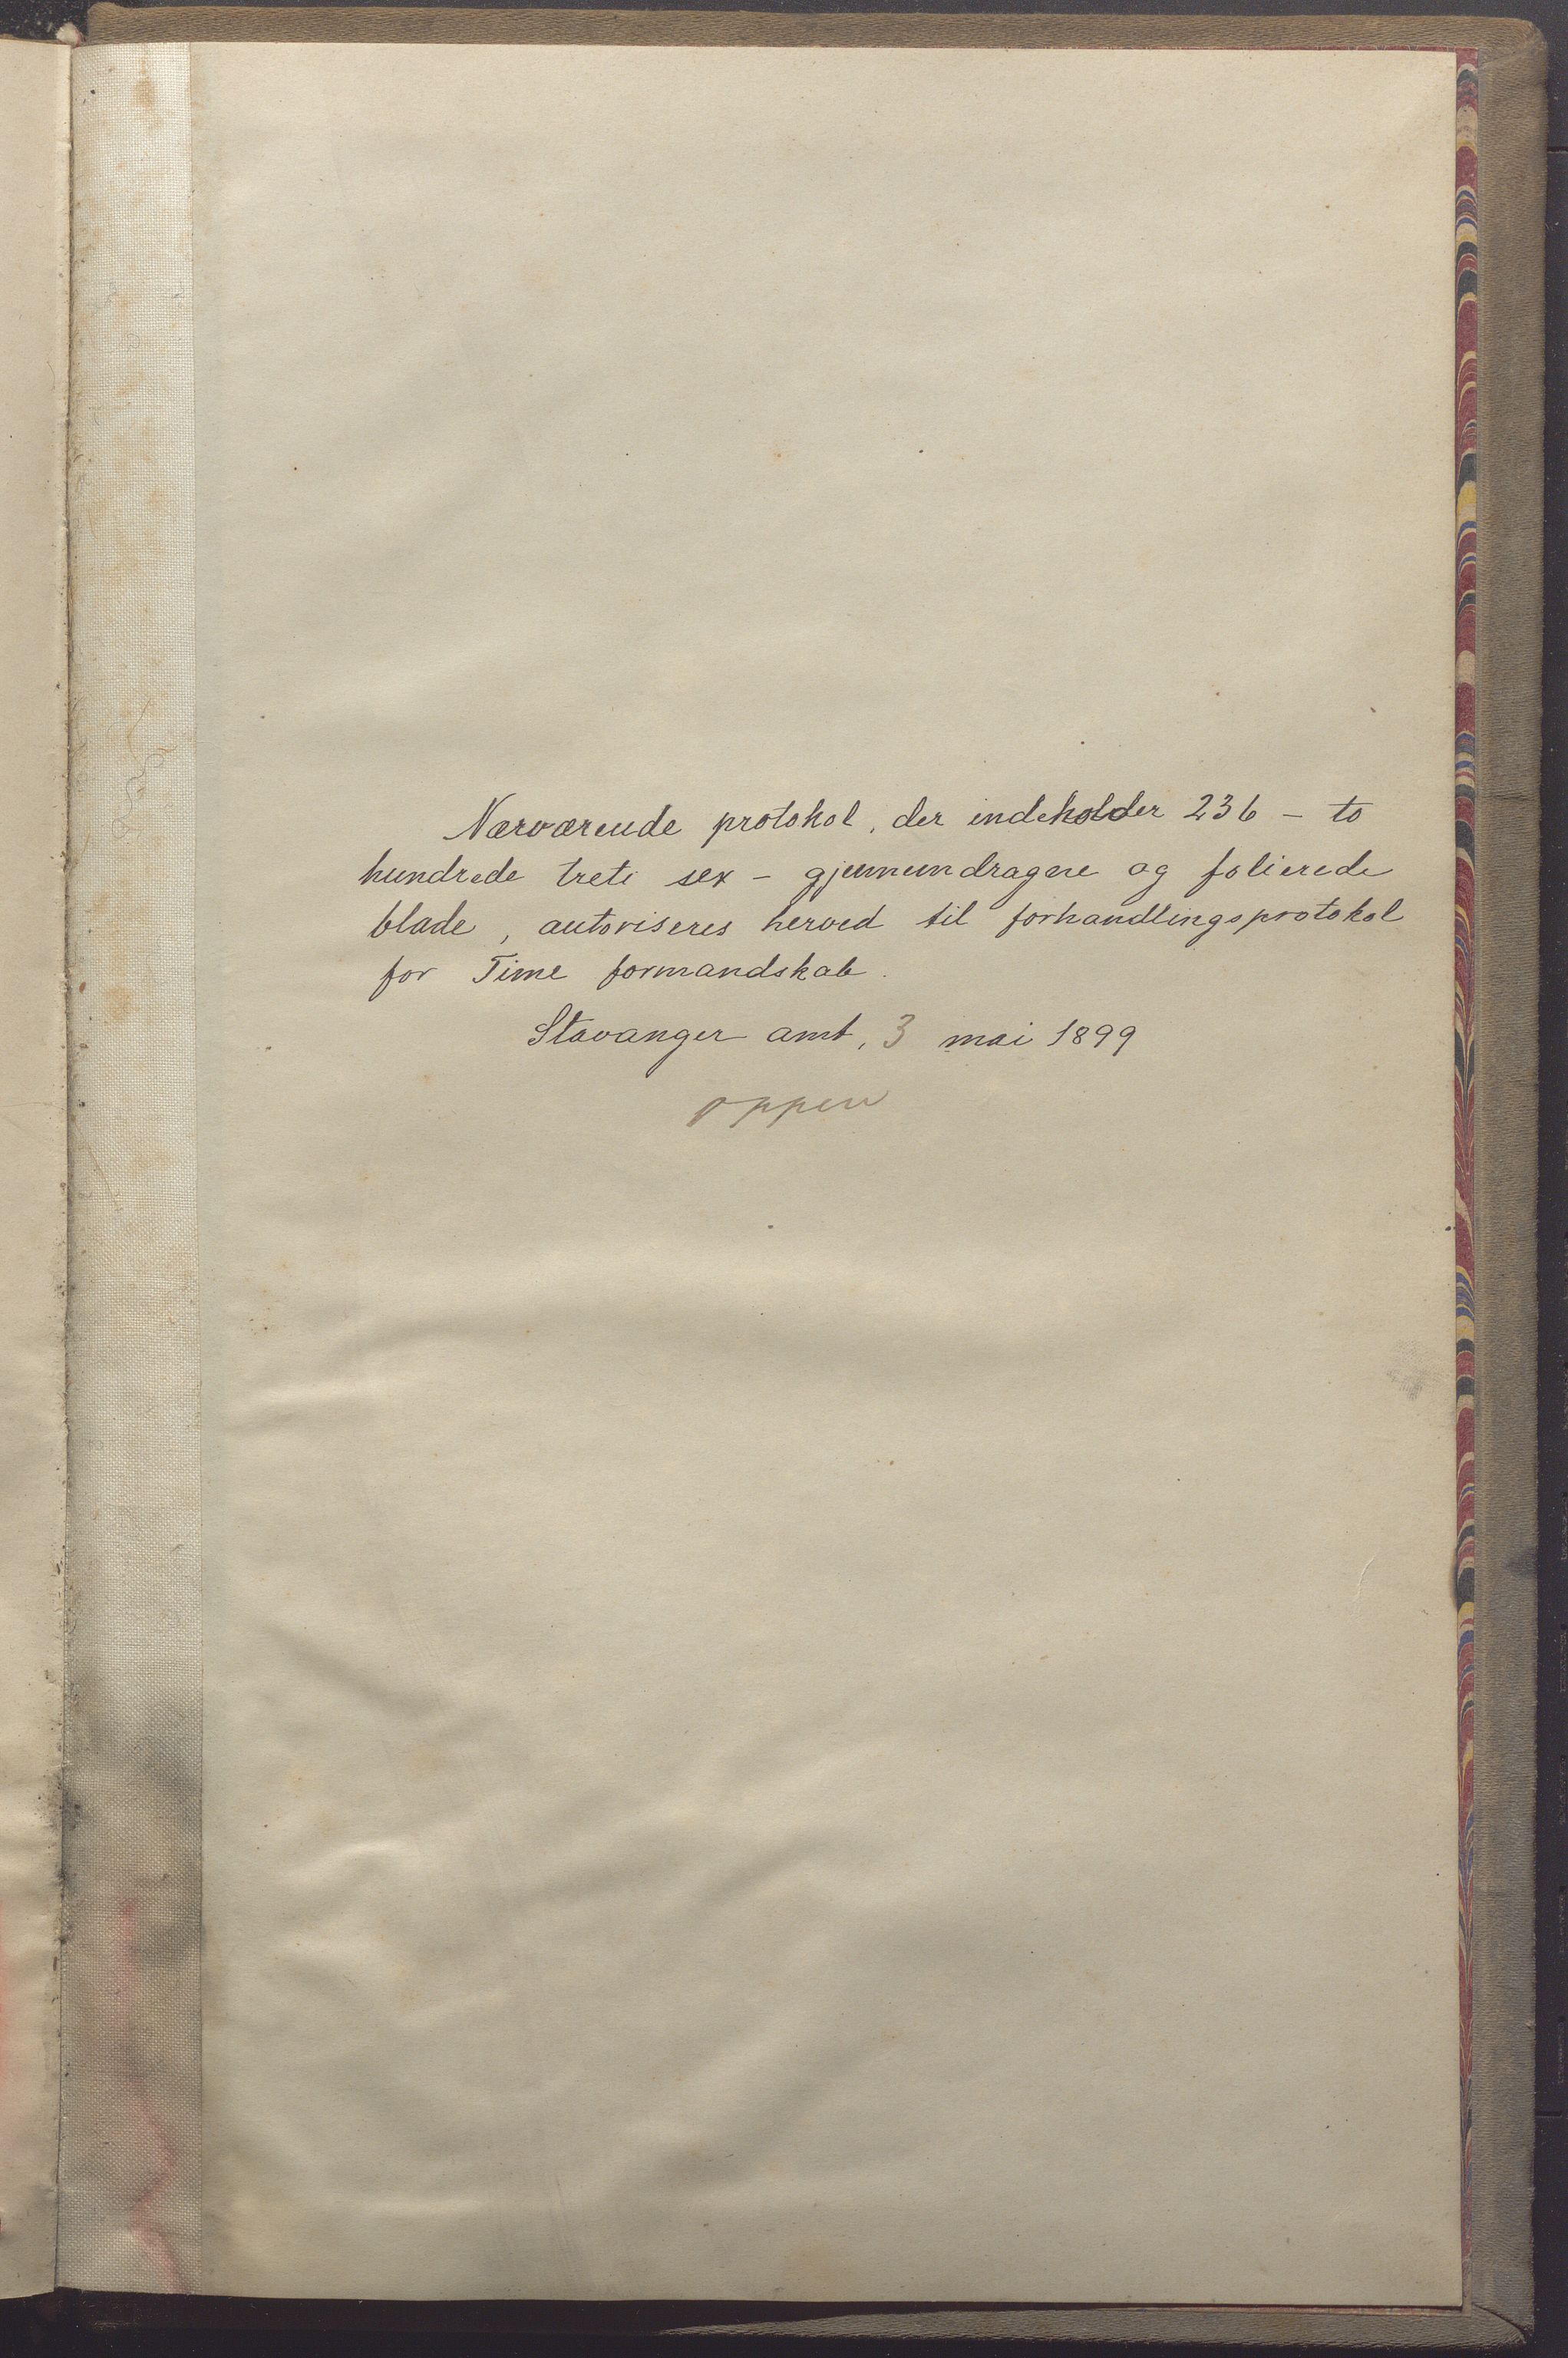 Nærværende protokol, der indeholder 236 – to
hundrede treti sex – gjennemdragne og folierede
blade, autoriseres herved til forhandlingsprotokol
for Time formandskab.
Stavanger amt, 3 mai 1899
Oppen